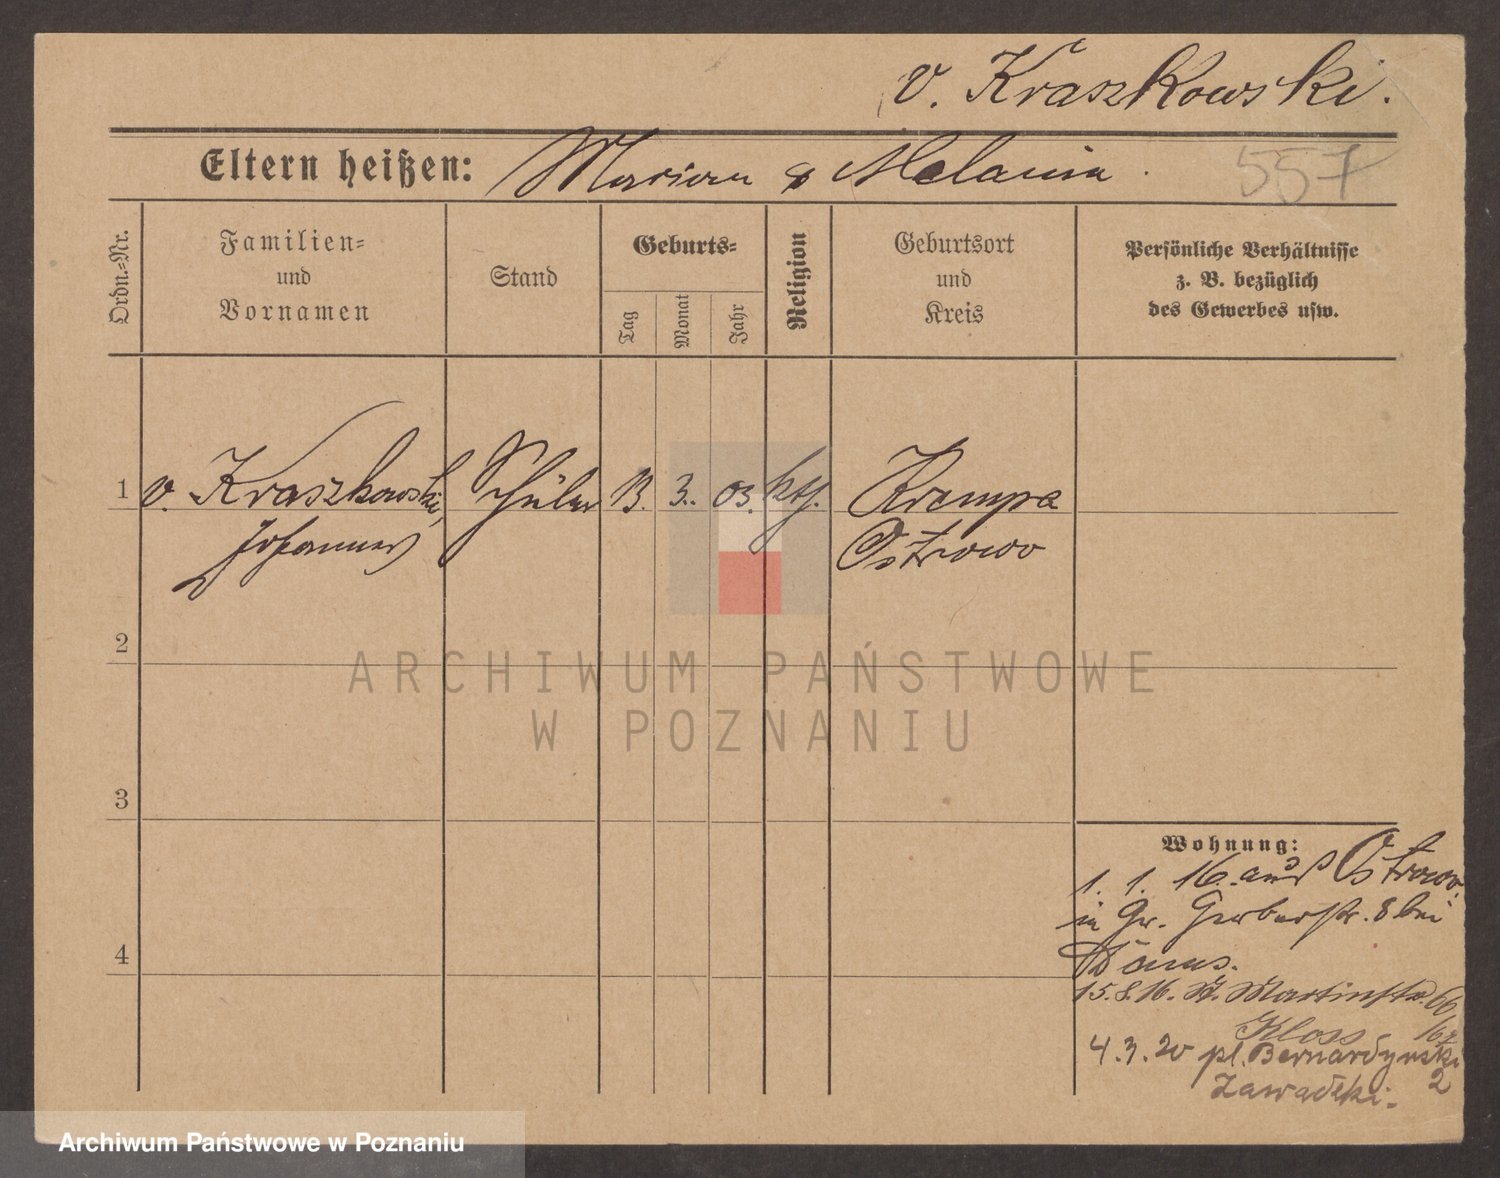 v. Kraszkowski.
Eltern heißen: Marian & Melania.
557
Ordn.=Nr.
Familien=
und
Vornamen
Stand
Geburts=
Tag
Monat
Jahr
Religion
Geburtsort
und
Kreis
Persönliche Verhältnisse
z. B. bezüglich
des Gewerbes usw.
1 v. Kraszkowski, Schüler 13. 3. 03. kth. Krempa
Johannes Ostrowo
2
3
4
Wohnung:
1. 1. 16. aus Ostrowo.
in Gr. Gerberstr. 8 bei
15.8.16. St. Martinstr. 66
/67
Kloss
4.3.20 pl. Bernardynski
2
Zawadzki.
ARCHIWUM PAŃSTWOWE
W POZNANIU
Archiwum Państwowe w Poznaniu